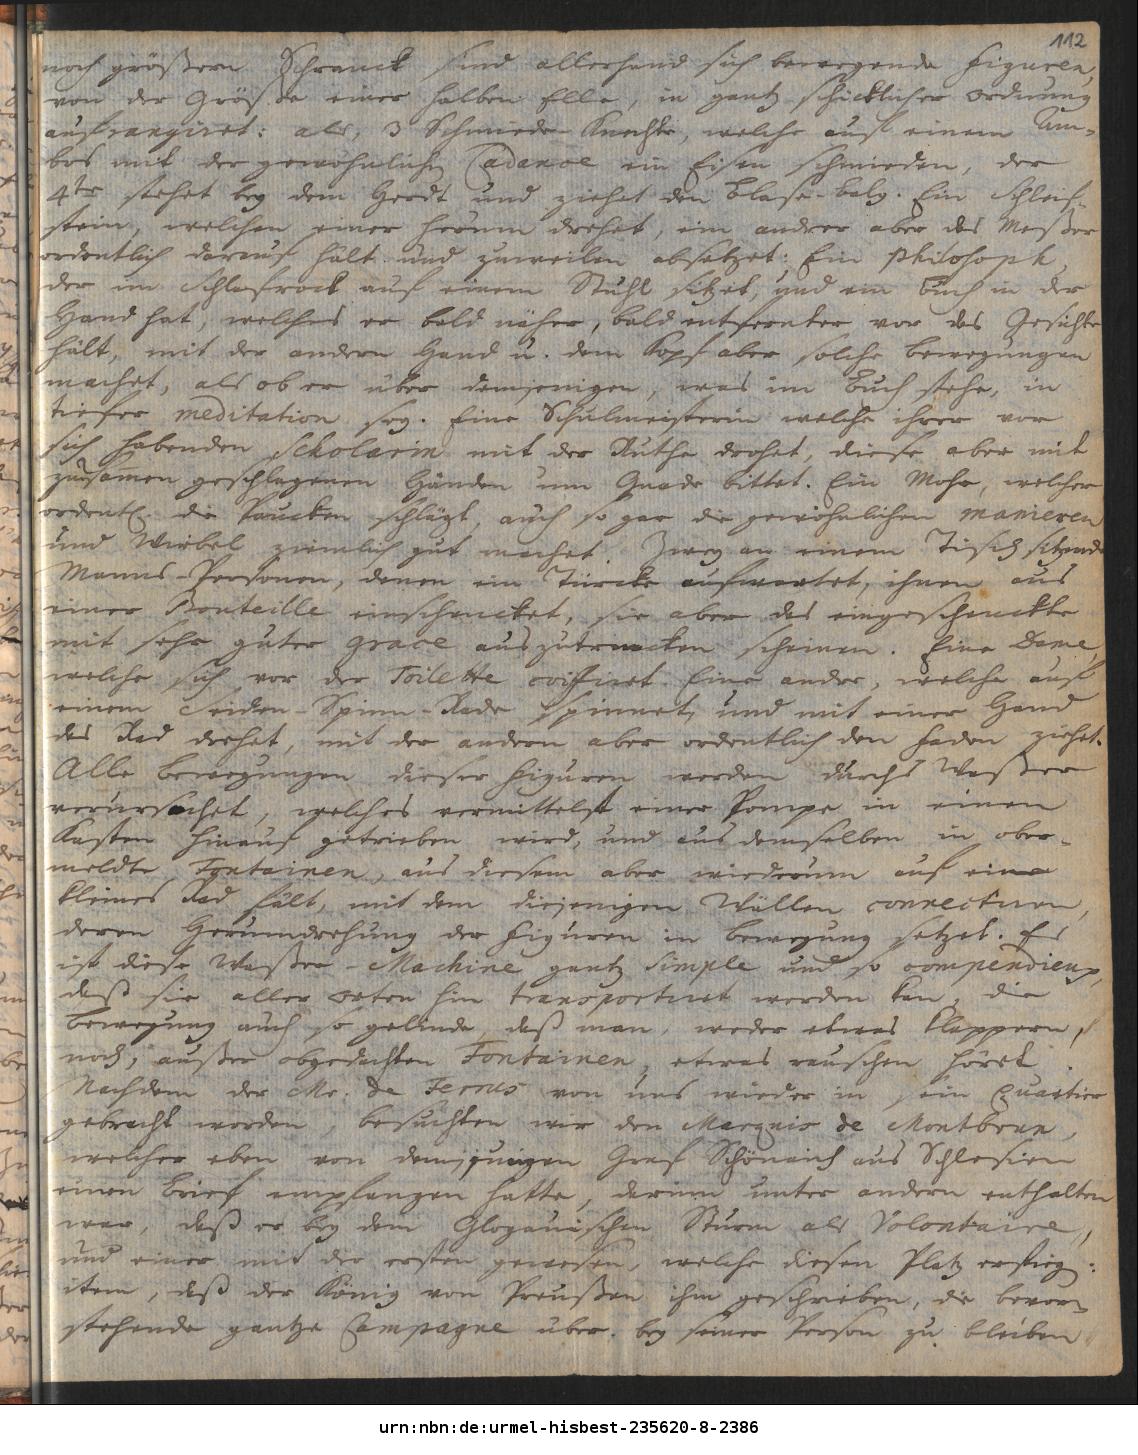 112
noch größern Schranck sind allerhand sich bewegende Figuren,
von der Größe einer halben Elle, in gantz schicklicher Ordnung
aufrangiret: als, 3 Schmiede-Knechte, welche auf einem Am-
bos mit der gewöhnlichen Cadance ein Eisen schmieden, der
4te stehet bey dem Herdt und ziehet den Blase-balg. Ein Schleif-
stein, welchen einer herum drehet, ein anderer aber das Meßer
ordentlich darauf hält und zuweilen absetzet; Ein Philosoph,
der im Schlafrock auf einem Stuhl sitzet, und ein Buch in der
Hand hat, welches er bald näher, bald entfernter vor das Gesichte
hält, mit der andern Hand u. dem Kopf aber solche Bewegungen
machet, als ob er über demjenigen, was im Buch stehe, in
tiefer meditation sey. Eine Schulmeisterin welche ihrer vor
sich habenden Scholarin mit der Ruthe drohet, diese aber mit
zusammen geschlagenen Händen um Gnade bittet. Ein Mohr, welcher
ordentl. die Paucken schlägt, auch so gar die gewöhnlichen manieren
und Wirbel ziemlich gut machet. Zwey an einem Tisch sitzende
Manns-Personen, denen ein Türcke aufwartet, ihnen aus
einer Bouteille einschencket, sie aber das eingeschenckte
mit sehr guter grace auszutrincken scheinen. Eine Dame,
welche sich vor der Toilette coiffiret. Eine andere, welche auf
einem Seiden-Spinn-Rade spinnet, und mit einer Hand
das Rad drehet, mit der andern aber ordentlich den Faden ziehet.
Alle Bewegungen dieser Figuren werden durchs Waßer
verursachet, welches vermittelst einer Pompe in einen
Kasten hinauf getrieben wird, und aus demselben in ober-
meldte Fontainen, aus diesem aber wiederum auf eine
kleines Rad fält, mit dem diejenigen Wällen connectiren,
deren Herumdrehung der Figuren in Bewegung setzet. Es
ist diese Waßer-Machine gantz simple und so compendieux,
daß sie aller Orten hin transportiret werden kan, die
Bewegung auch so gelinde, daß man, weder etwas klappern,
noch, außer obgedachten Fontainen, etwas rauschen höret.
Nachdem der Mr. de Fernes von uns wieder in sein Quartier
gebracht worden, besuchten wir den Marquis de Montbrun,
welcher eben von demjenigen Graf Schönaich aus Schlesien
einen Brief empfangen hatte, darinn unter andern enthalten
war, daß er bey dem Glogauischen Sturm als Volontaire,
und einer mit der ersten gewesen, welche diesen Platz erstieg:
item, daß der König von Preußen ihm geschrieben, die bevor-
stehende gantze Campagne über bey seiner Person zu bleiben
urn:nbn:de:urmel-hisbest-235620-8-2386